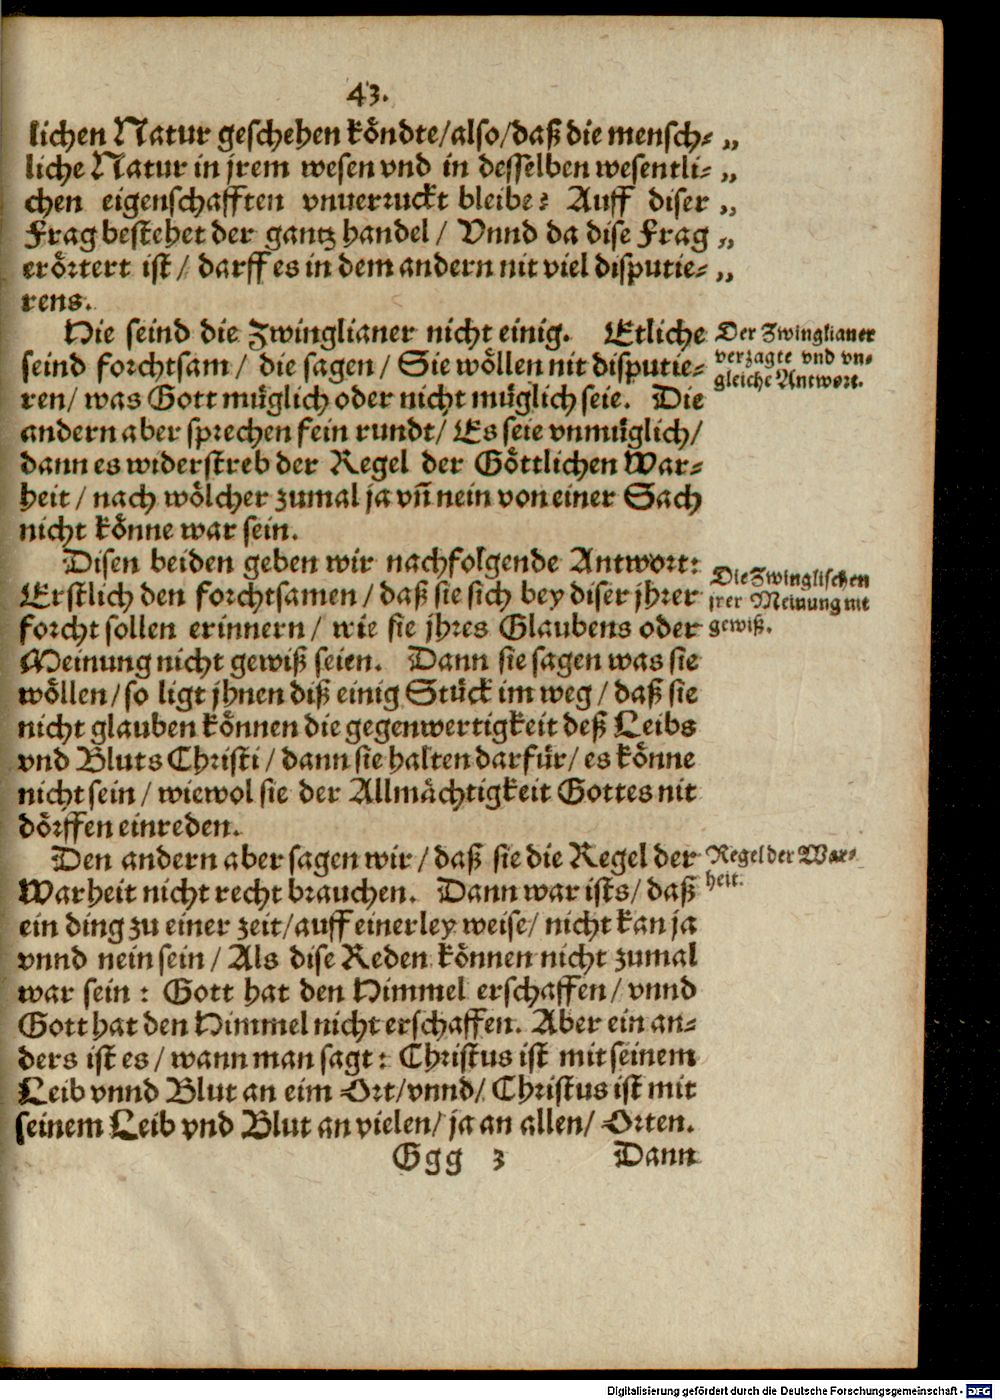 43.
lichen Natur geschehen köndte/also/daß die mensch- „
liche Natur in jrem wesen vnd in desselben wesentli- „
chen eigenschafften vnuerruckt bleibe? Auff diser „
Frag bestehet der gantz handel / Vnnd da dise Frag „
erörtert ist / darff es in dem andern nit viel disputie- „
rens.
Hie seind die Zwinglianer nicht einig. Etliche
seind forchtsam / die sagen / Sie wöllen nit disputie-
ren/ was Gott müglich oder nicht müglich seie. Die
andern aber sprechen fein rundt/ Es seie vnmüglich/
dann es widerstreb der Regel der Göttlichen War-
heit / nach wölcher zumal ja vñ nein von einer Sach
nicht könne war sein.
Der Zwinglianer
verzagte vnd vn-
gleiche Antwort.
Disen beiden geben wir nachfolgende Antwort:
Erstlich den forchtsamen / daß sie sich bey diser jhrer
forcht sollen erinnern / wie sie jhres Glaubens oder
Meinung nicht gewiß seien. Dann sie sagen was sie
wöllen/so ligt jhnen diß einig Stück im weg / daß sie
nicht glauben können die gegenwertigkeit deß Leibs
vnd Bluts Christi / dann sie halten darfür/ es könne
nicht sein / wiewol sie der Allmächtigkeit Gottes nit
dörffen einreden.
Die Zwinglischen
jrer Meinung nit
gewiß.
Den andern aber sagen wir / daß sie die Regel der
Warheit nicht recht brauchen. Dann war ists/ daß
ein ding zu einer zeit/auff einerley weise/ nicht kan ja
vnnd nein sein / Als dise Reden können nicht zumal
war sein : Gott hat den Himmel erschaffen/ vnnd
Gott hat den Himmel nicht erschaffen. Aber ein an-
ders ist es / wann man sagt: Christus ist mit seinem
Leib vnnd Blut an eim Ort/vnnd/ Christus ist mit
seinem Leib vnd Blut an vielen/ ja an allen/ Orten.
Regel der War-
heit.
Ggg 3 Dann
Digitalisierung gefördert durch die Deutsche Forschungsgemeinschaft - DFG